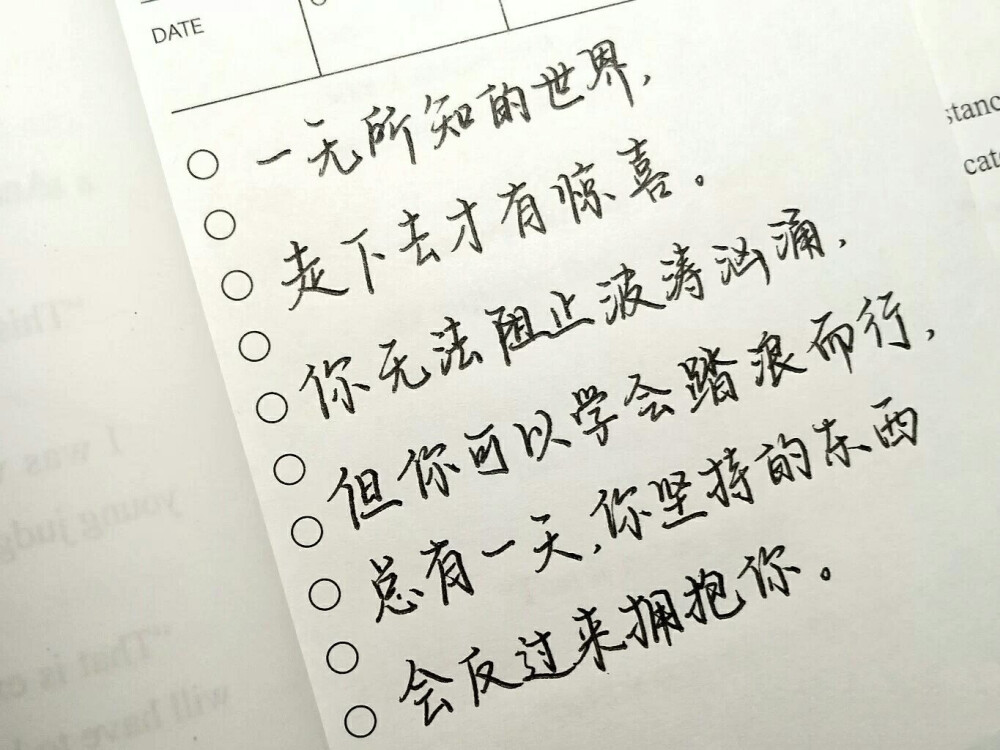 DATE
一无所知的世界，
走下去才有惊喜。
你无法阻止波涛汹涌，
但你可以学会踏浪而行，
总有一天，你坚持的东西
会反过来拥抱你。
stanc
cat
"This
I was
young judg
"That is
will have to